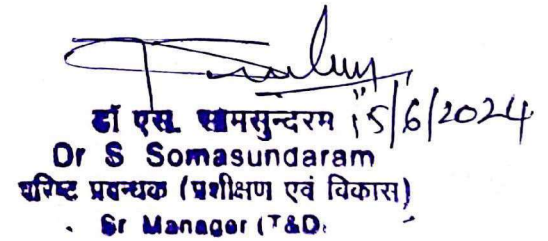 डॉ एस. सामसुन्दरम 15/6/2024
Dr S Somasundaram
वरिष्ट प्रबन्धक (प्रशीक्षण एवं विकास)
Sr Manager (T&D)